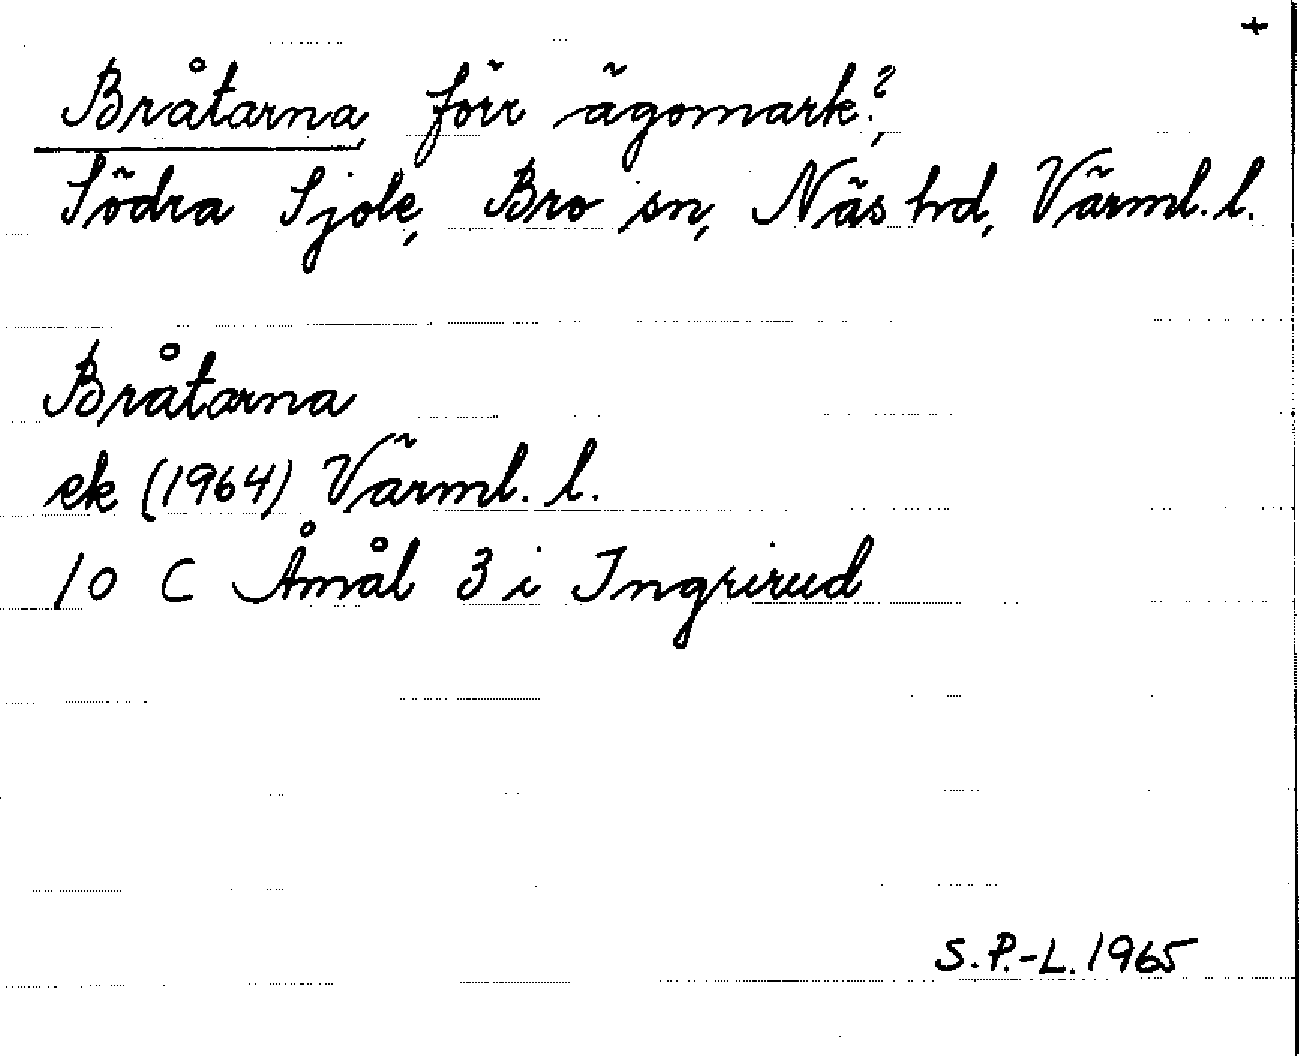 +
Bråtarna, förr ägomark?,
Södra Sjole, Bro sn, Näs hd, Värml. l.
Bråtarna
ek (1964) Värml. l.
10 C Åmål 3 i Ingrirud
S.P.-L. 1965